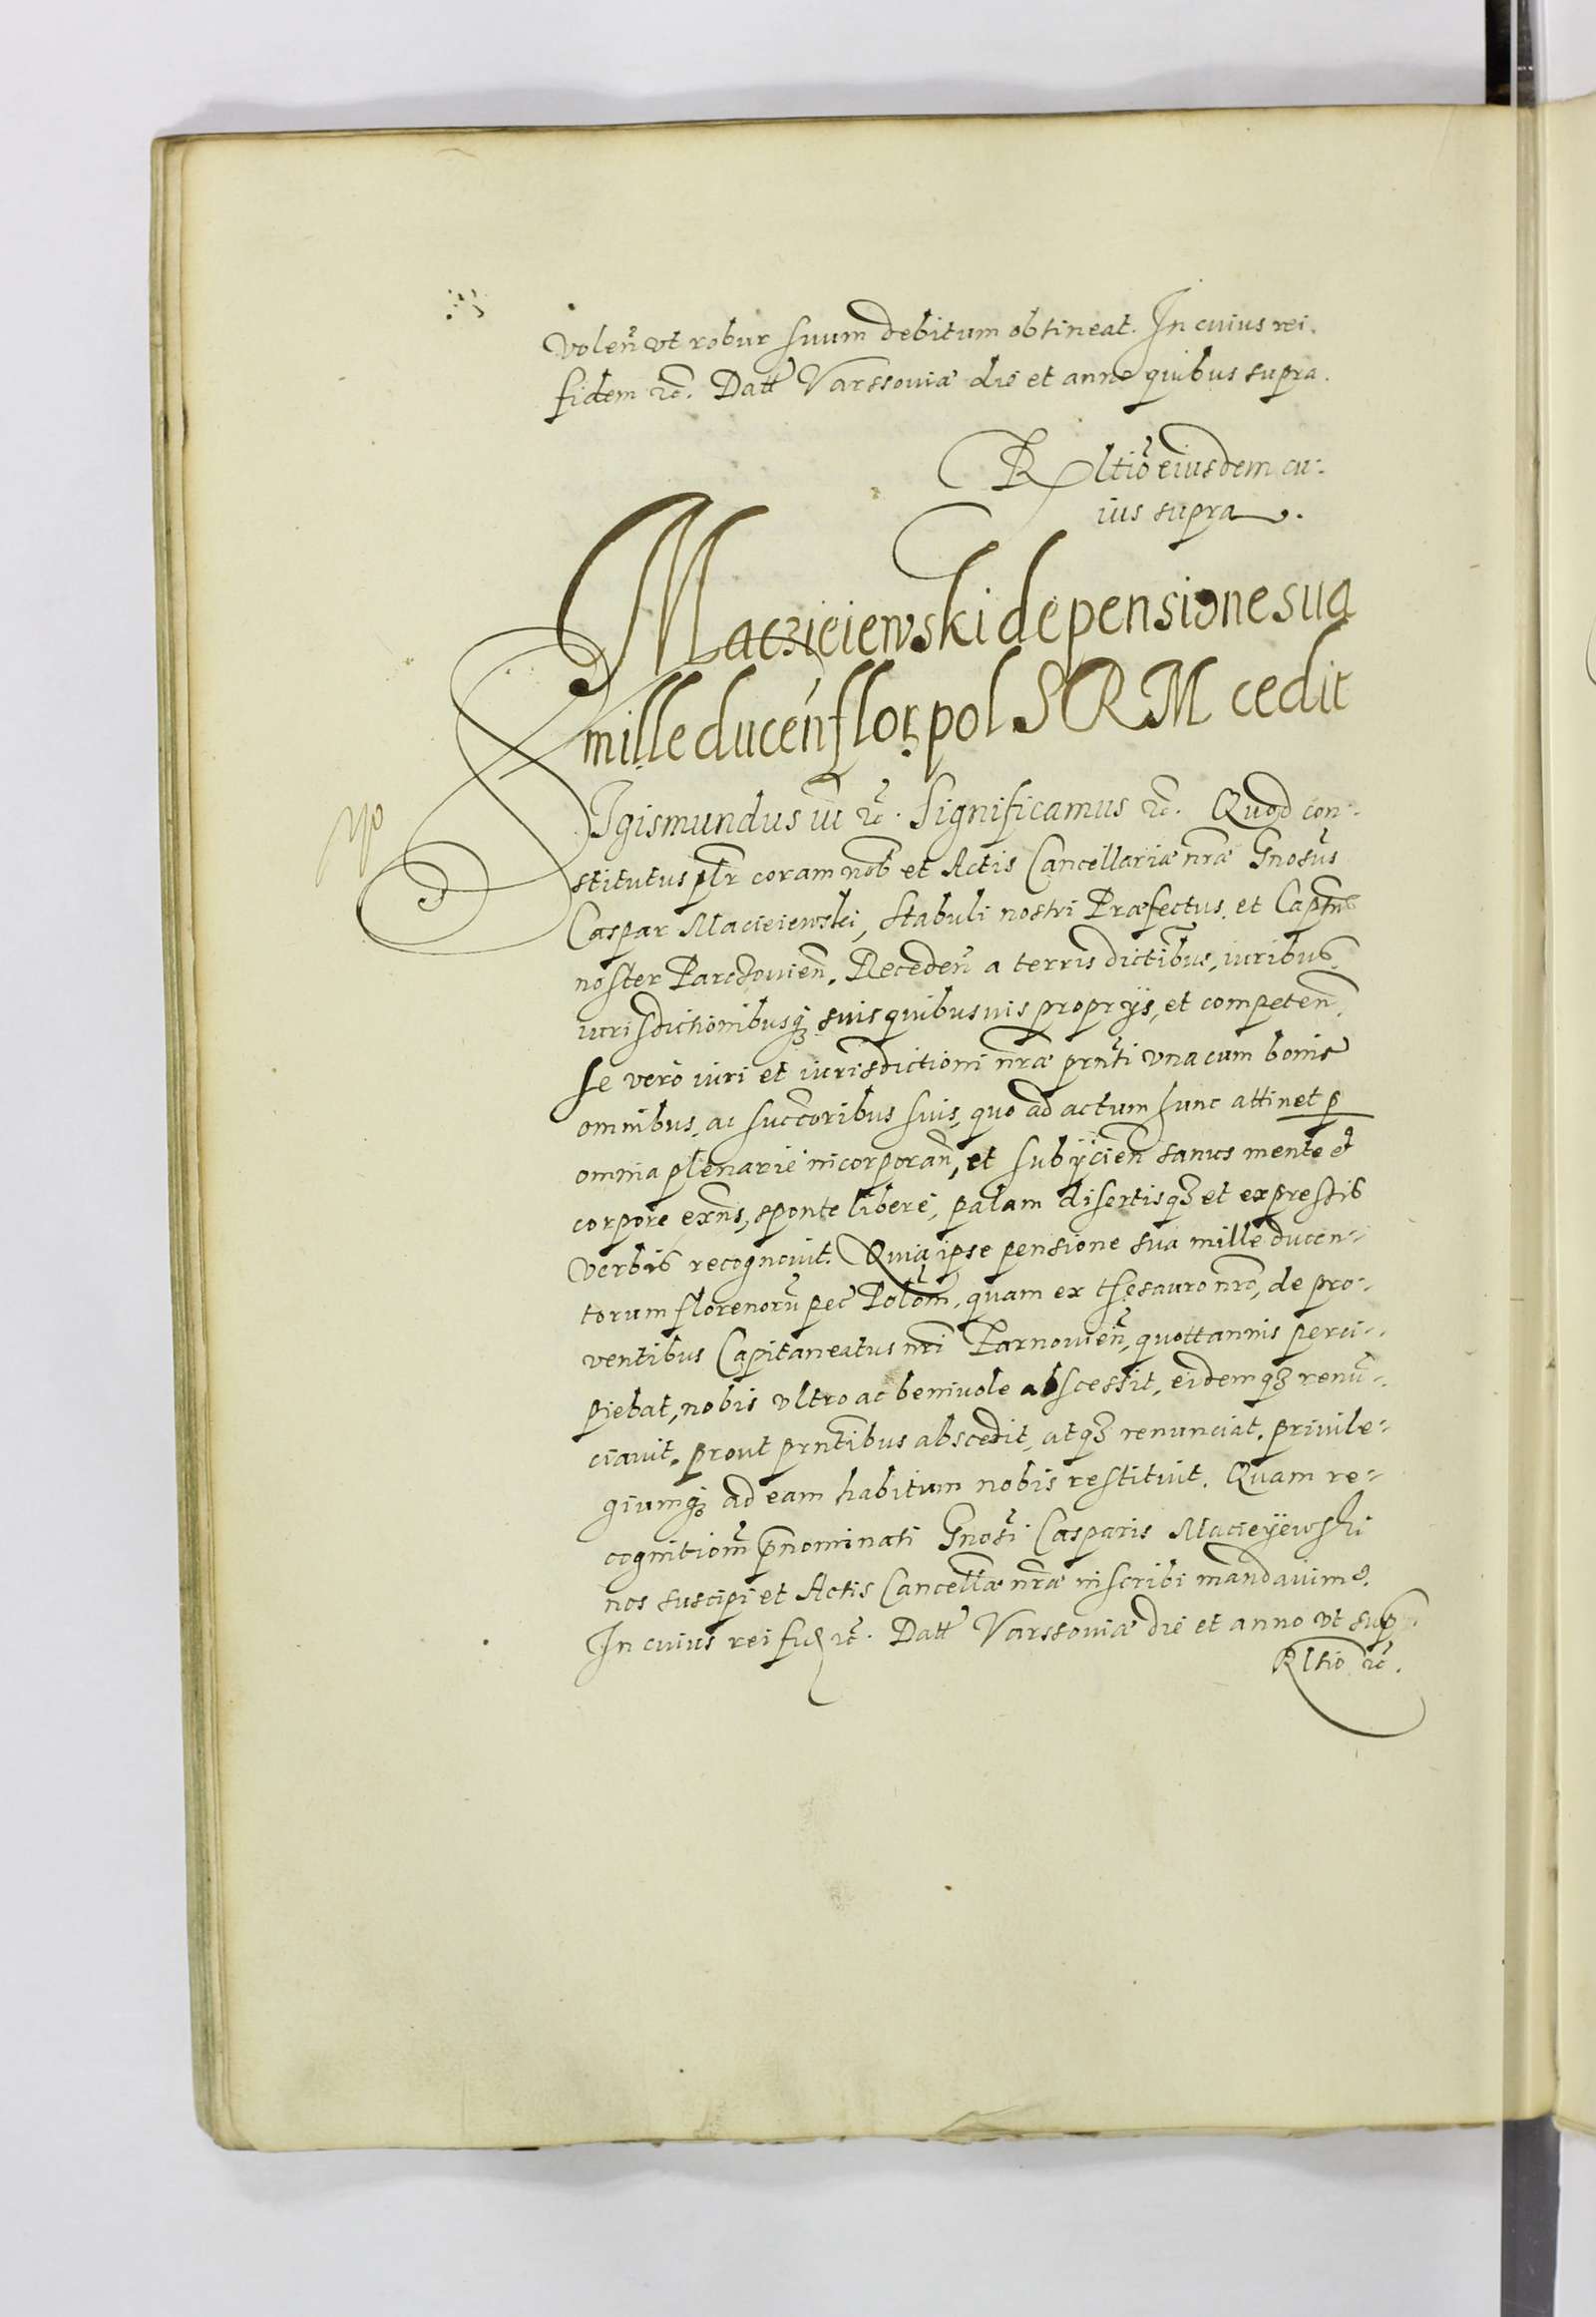 volen̄ vt robur suum debitum obtineat. In cuius rei
fidem ꝛc̄. Datt Varssouiæ die et anno quibus supra.
Rltio eiusdem cu:
ius supra.
Maczieiewski de pensione sua
mille ducen̄ flor pol S R M cedit
SIgismundus iii ꝛc̄. Significamus ꝛc̄. Quod con:
stitutus plr̄ coram nob̄ et Actis Cancellariæ nr̄æ Gnosus
Caspar Macieiewski, stabuli nostri Præfectus, et Captn̄s
noster Parczouien̄. Receden̄ a terris dictibus, iuribus,
iurisdictionibusqꝫ suis quibusuis proprijs, et competen̄.
se vero iuri et iurisdictioni nr̄æ prn̄ti vnacum bonis
omnibus, ac succ̄oribus suis, quo ad actum hunc attinet p
omnia plenarie incorporan̄, et subijcien̄ sanus mente et
corpore exn̄s, sponte libere, palam disertisqꝫ et expressis
verbis recognouit. Quia ipse pensione sua mille ducen:
torum florenorū pec̄ Polōm, quam ex thesauro nr̄o, de pro:
ventibus Capitaneatus nr̄i Tarnouien̄, quottannis perci:
piebat, nobis vltro ac beniuole abscessit, eidemqꝫ renū:
ciauit, prout prn̄tibus abscedit, atqꝫ renunciat, priuile:
giumqꝫ ad eam habitum nobis restituit. Quam re:
cognitionē p̄nominati Gnosi Casparis Macieyewski
nos suscipi et Actis Cancellæ nr̄æ inscribi mandauimꝰ.
In cuius rei fid ꝛc̄. Datt Varssouiæ die et anno vt sup.
Rltio ꝛc̄.